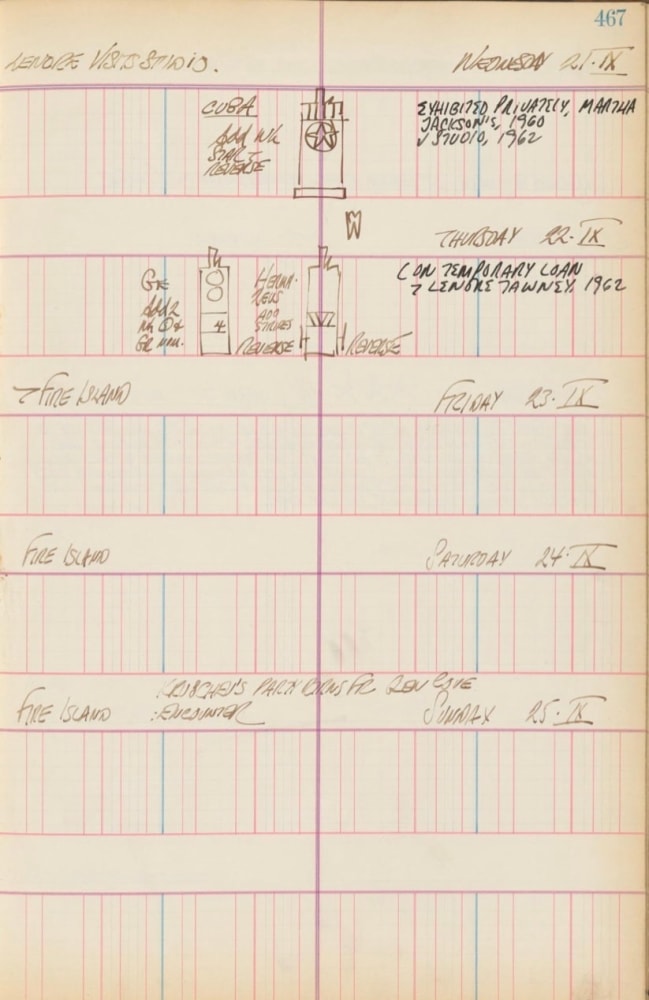 467
LENORE VISITS STUDIO.
WEDNESDAY 21·IX
CUBA
Add Wh
STAR I
REVERSE
EXHIBITED PRIVATELY, MARTHA
JACKSON'S, 1960
√ STUDIO, 1962
W
THURSDAY 22·IX
Add 2
4
ADD
STRIPES
REVERSE
REVERSE
CONTEMPORARY LOAN
→ LENORE TAWNEY, 1962
→ FIRE ISLAND
FRIDAY 23·IX
FIRE ISLAND
SATURDAY 24·IX
PARTY FR GLEN COVE
FIRE ISLAND :ENCOUNTER
SUNDAY 25·IX